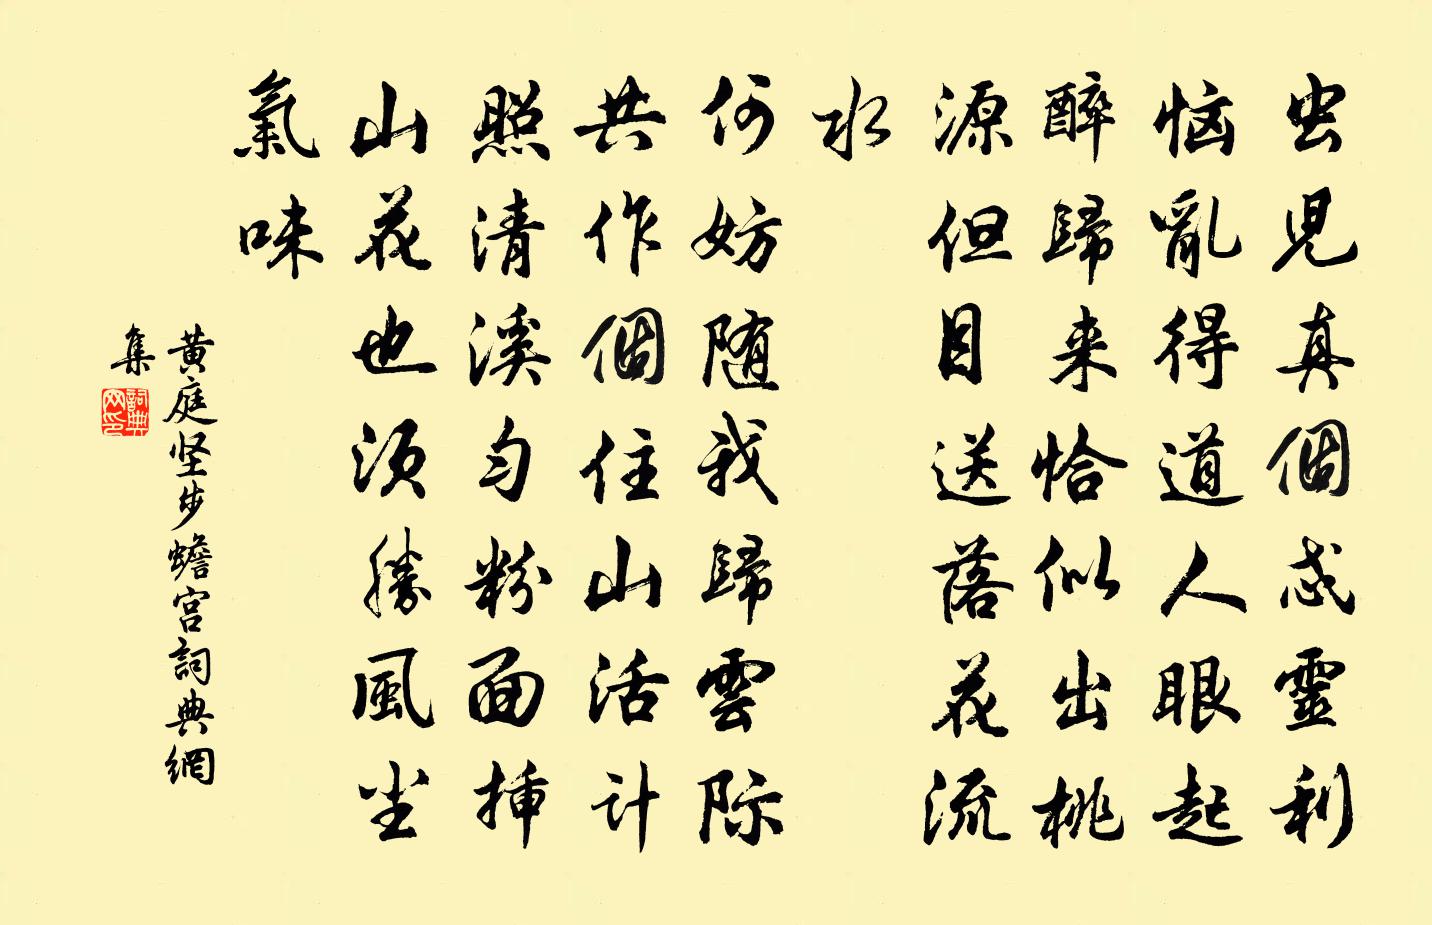 虫児真個忒靈利
恼亂得道人眼起
醉歸来恰似出桃
源但目送落花流
水
何妨随我歸雲際
共作個住山活计
照清溪匀粉面插
山花也须勝風尘
氣味
黄庭坚步蟾宫詞典網
集
詞典
网印